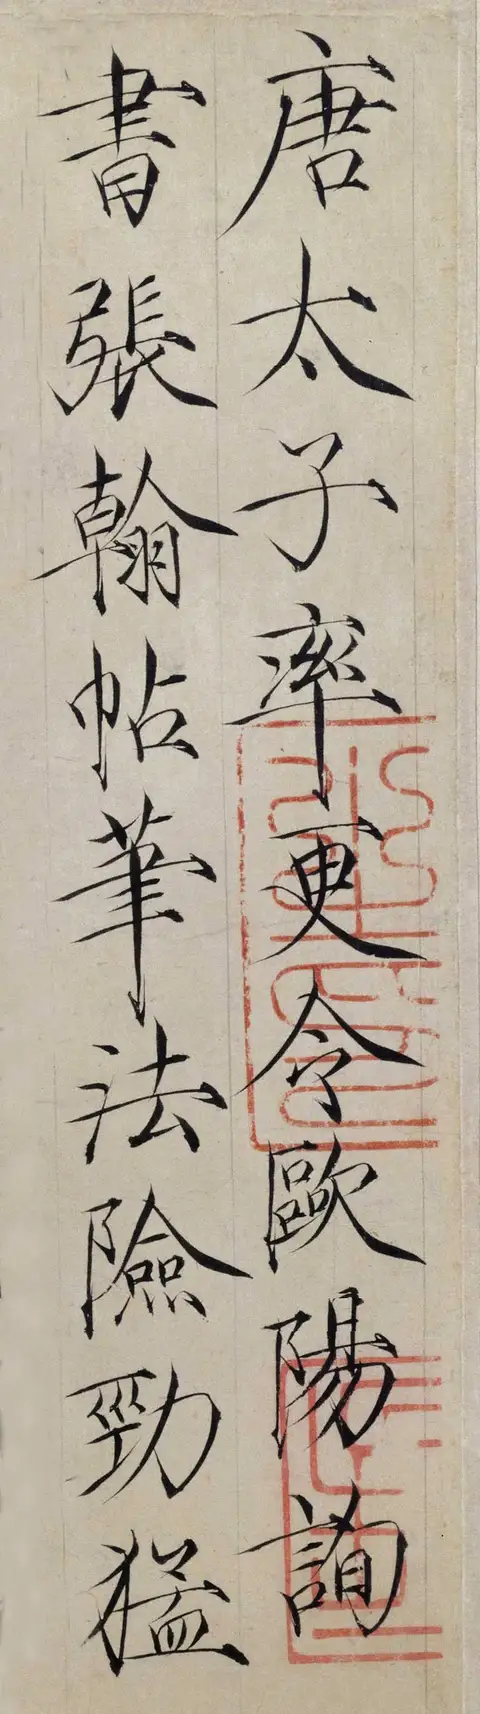 唐太子率更令歐陽詢
書張翰帖筆法險勁猛